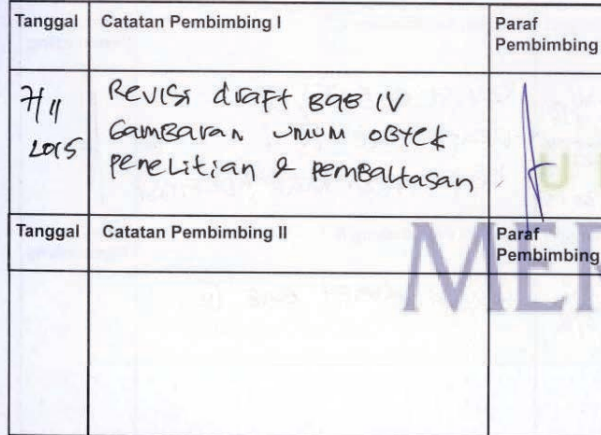 Tanggal Catatan Pembimbing I Paraf Pembimbing
7/11 2015 Revisi draft BAB IV
Gambaran umum obyek
penelitian & pembahasan
Tanggal Catatan Pembimbing II Paraf Pembimbing
MER